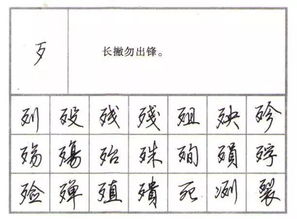 歹 长撇勿出锋。
列 殁 残 殘 殂 殃 殄
殇 殤 殆 殊 殉 殞 殍
殓 殚 殖 殨 死 冽 裂